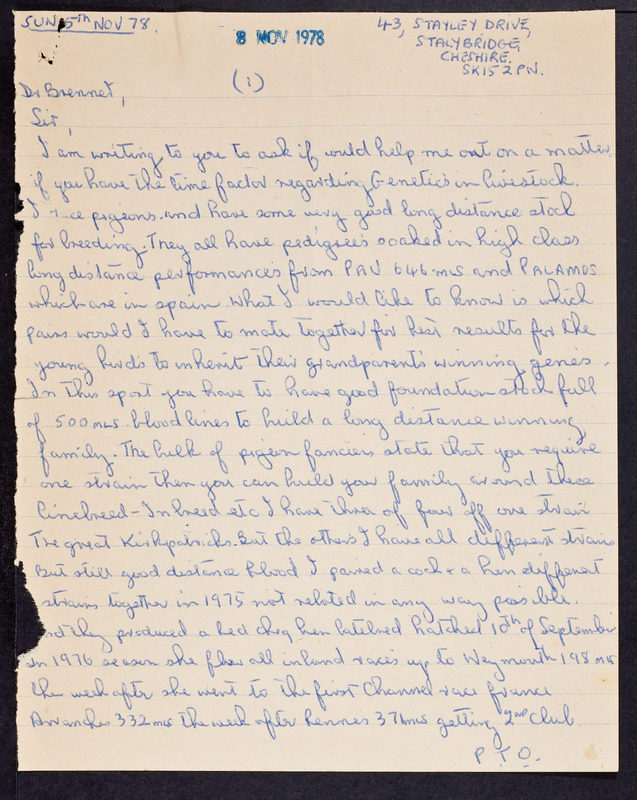 SUN 5th NOV 78.
8 NOV 1978
43, STAYLEY DRIVE,
STALYBRIDGE,
CHESHIRE.
SK15 2PN.
(1)
Dr Brennet,
Sir,
I am writing to you to ask if would help me out on a matter
if you have the time factor regarding Genetics in livestock.
I race pigeons. and have some very good long distance stock
for breeding. They all have pedigrees soaked in high class
long distance performances from PAU 646 mls and PALAMOS
which are in spain What I would like to know is which
pairs would I have to mate together for best results for the
young birds to inherit their grandparents winning genes.
In this sport you have to have good foundation stock full
of 500 mls. bloodlines to build a long distance winning
family. The bulk of pigeon fanciers state that you require
one strain then you can build your family around these
Linebreed - Inbreed etc I have three of four off one strain
The great Kirkpatricks. But the others I have all different strains
But still good distance blood I paired a cock & a hen different
strains together in 1975 not related in any way possible.
nd they produced a Red cheq hen latebred hatched 10th of September
In 1976 season she flew all inland races up to Weymouth 198 mls
the week after she went to the first Channel race france
Avranches 332 mls the week after Rennes 376 mls getting 2nd club
P.T.O.